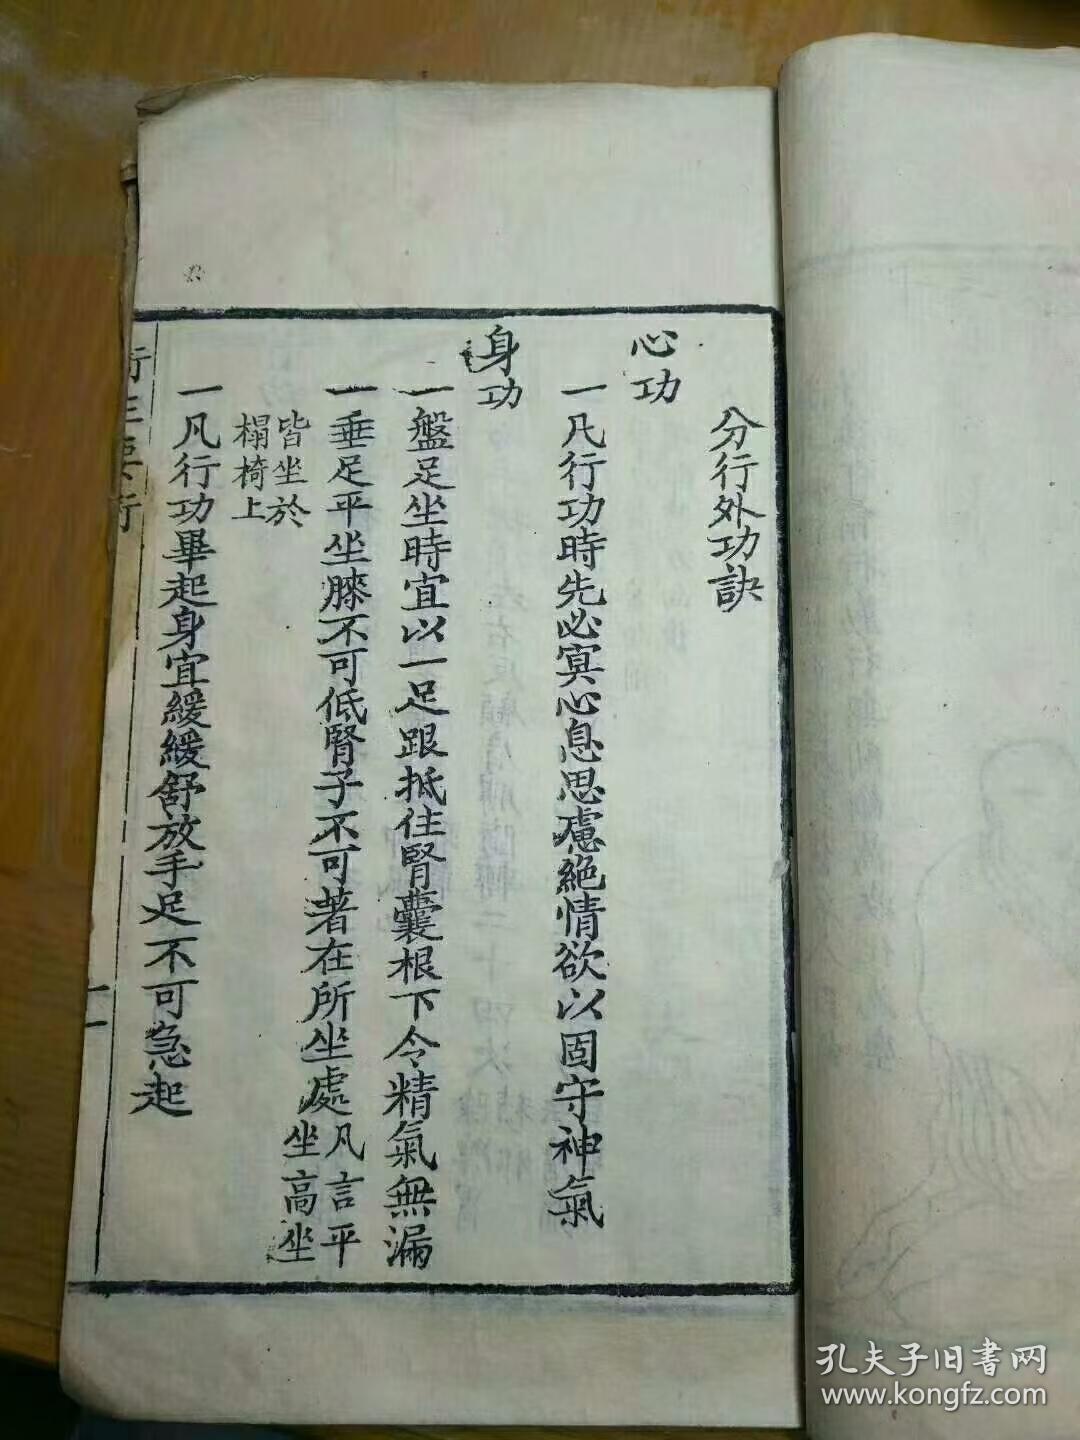 分行外功訣
心功
一凡行功時先必冥心息思慮絶情欲以固守神氣
身功
一盤足坐時宜以一足跟抵住腎囊根下令精氣無漏
一垂足平坐膝不可低腎子不可著在所坐處凡言平
坐高坐
皆坐於
榻椅上
一凡行功畢起身宜緩緩舒放手足不可急起
孔夫子旧書网
www.kongfz.com